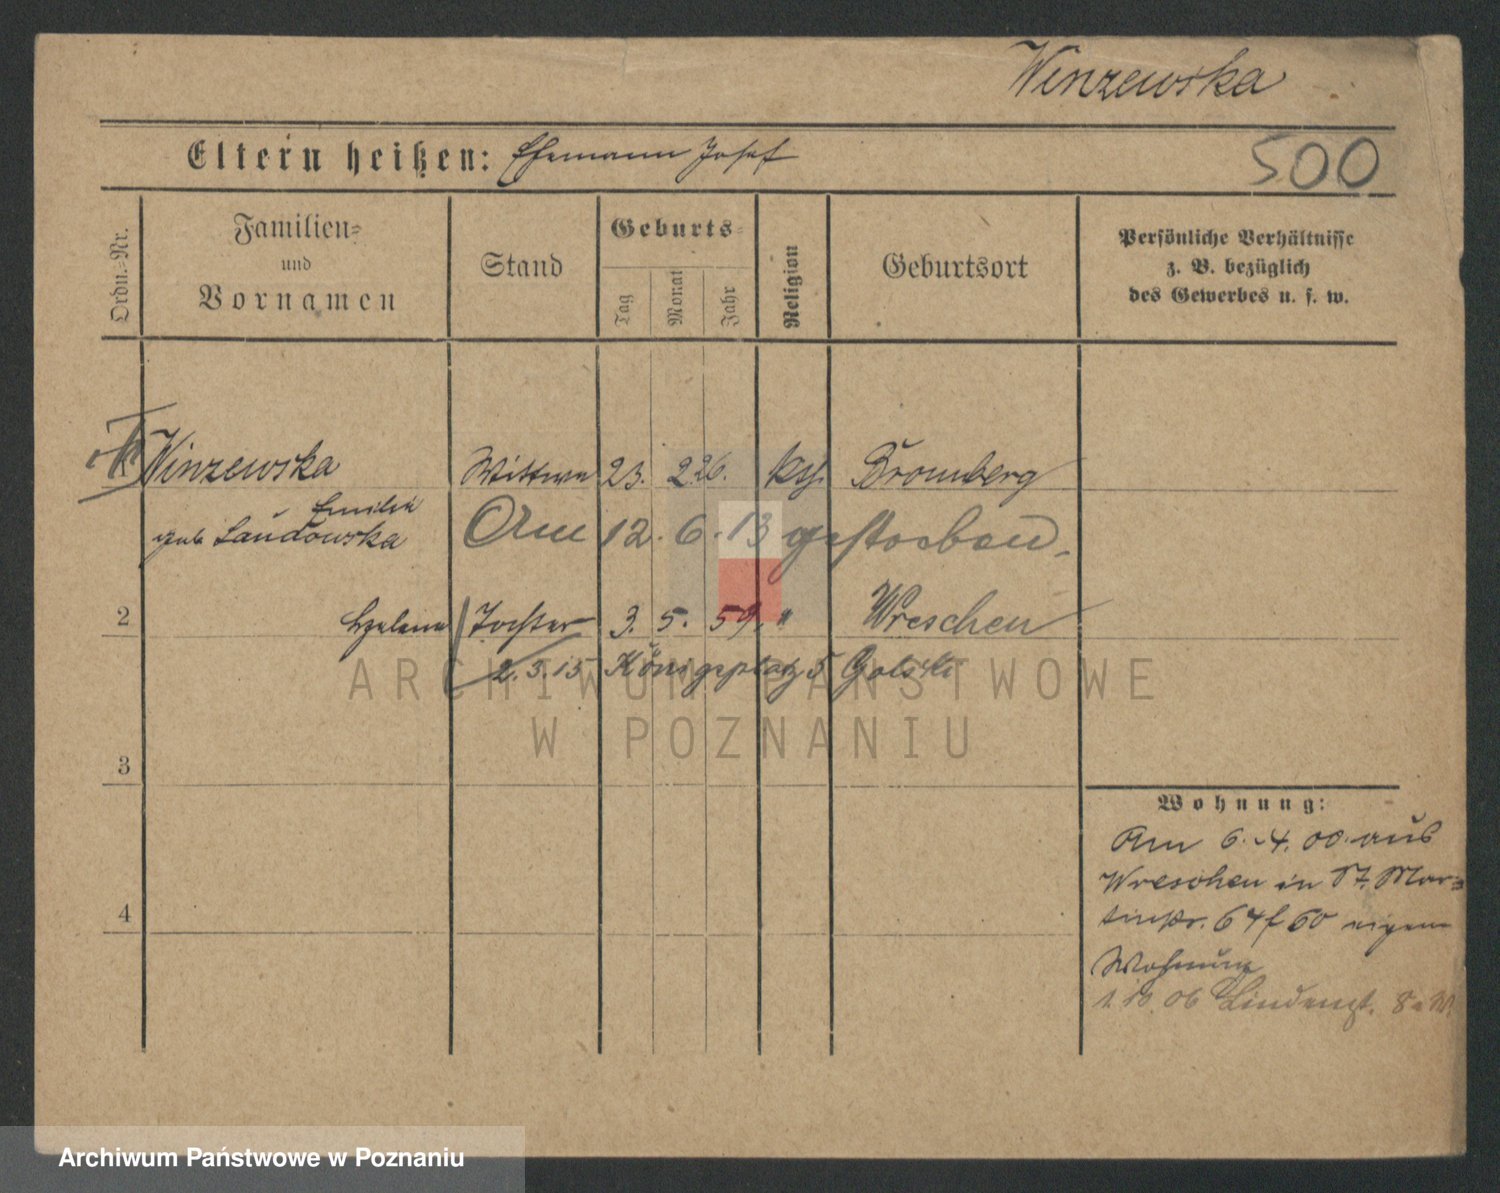 Winzewska
Eltern heißen: Ehemann Josef
500
Ordn.-Nr.
Familien-
und
Vornamen
Stand
Geburts-
Tag
Monat
Jahr
Religion
Geburtsort
Persönliche Verhältnisse
z. B. bezüglich
des Gewerbes u. s. w.
Winzewska Wittwe 23. 2. 26. kth. Bromberg
Emilie
geb Landowska Am 12. 6. 13 gestorben.
2 Helene Tochter 3. 5. 59. " Wreschen
2. 3. 15 Königsplatz 5 Golski
ARCHIWUM PAŃSTWOWE
W POZNANIU
3
4
Wohnung:
Am 6. 4. 00. aus
Wreschen in St. Mar-
tinstr. 64 f 60 eigene
Wohnung
1. 10. 06 Lindengt. 8a W.
Archiwum Państwowe w Poznaniu